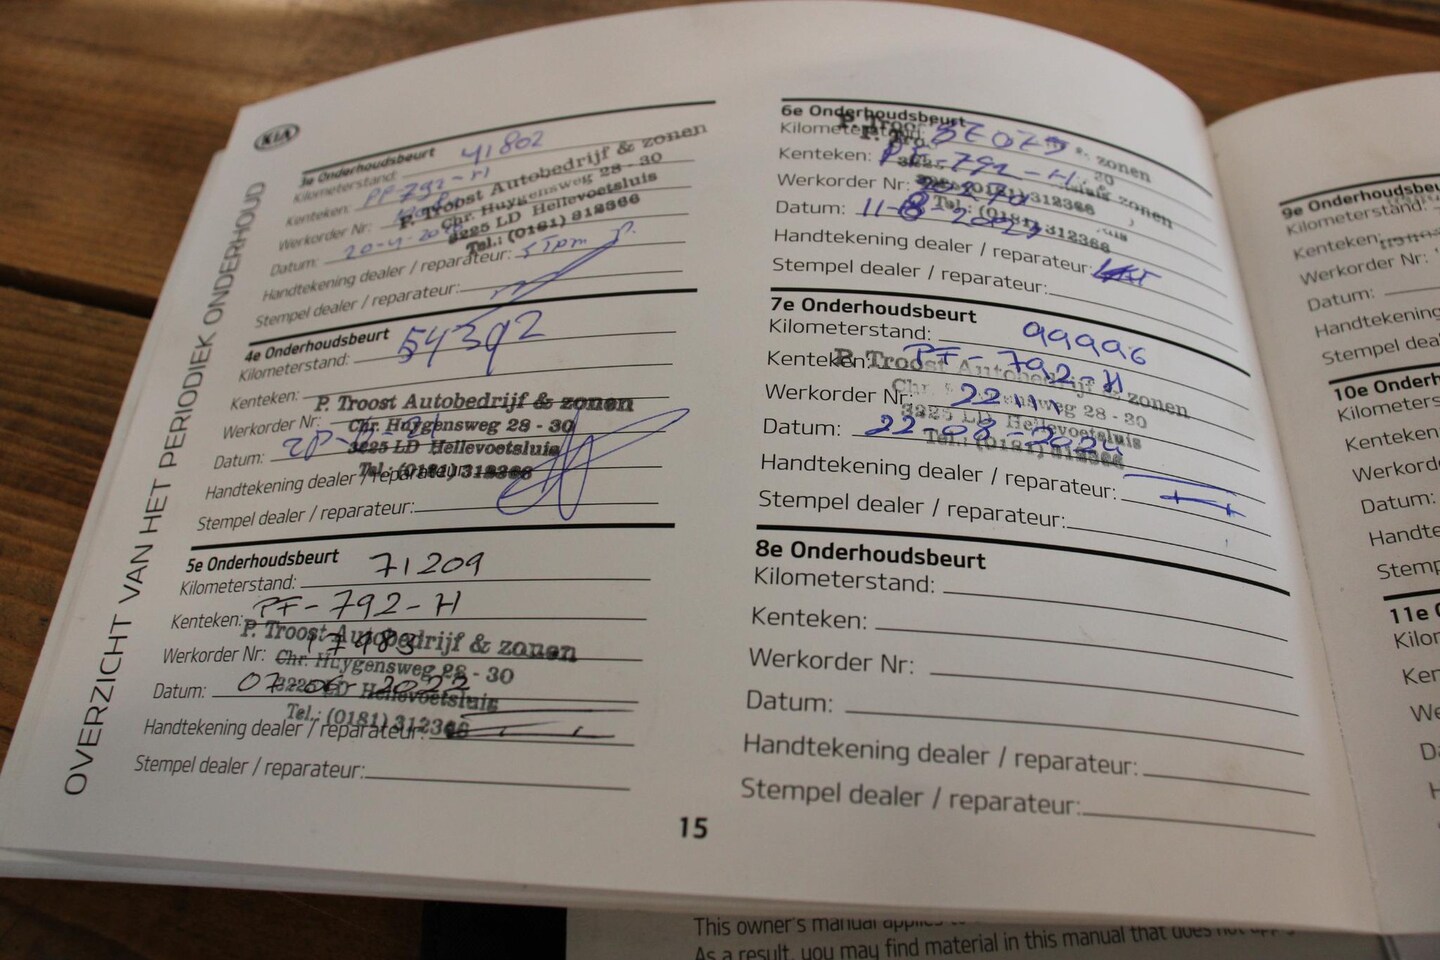 KIA
OVERZICHT VAN HET PERIODIEK ONDERHOUD
3e Onderhoudsbeurt
Kilometerstand: 41802
Kenteken: PF-792-H
Werkorder Nr:
Datum: 20-4-20
Handtekening dealer / reparateur:
Stempel dealer / reparateur:
P. Troost Autobedrijf & zonen
Chr. Huygensweg 28 - 30
3225 LD Hellevoetsluis
Tel.: (0181) 312366
4e Onderhoudsbeurt
Kilometerstand: 54392
Kenteken:
Werkorder Nr:
Datum:
Handtekening dealer / reparateur:
Stempel dealer / reparateur:
P. Troost Autobedrijf & zonen
Chr. Huygensweg 28 - 30
3225 LD Hellevoetsluis
Tel.: (0181) 312366
5e Onderhoudsbeurt
Kilometerstand: 71209
Kenteken: PF-792-H
Werkorder Nr: 17983
Datum: 07-06-2022
Handtekening dealer / reparateur:
Stempel dealer / reparateur:
P. Troost Autobedrijf & zonen
Chr. Huygensweg 28 - 30
3225 LD Hellevoetsluis
Tel.: (0181) 312366
15
6e Onderhoudsbeurt
Kilometerstand:
Kenteken: PF-792-H
Werkorder Nr:
Datum: 11-8-2023
Handtekening dealer / reparateur:
Stempel dealer / reparateur:
7e Onderhoudsbeurt
Kilometerstand: 99996
Kenteken: PF-792-H
Werkorder Nr:
Datum: 22-08-2024
Handtekening dealer / reparateur:
Stempel dealer / reparateur:
P. Troost Autobedrijf & zonen
Chr. Huygensweg 28 - 30
3225 LD Hellevoetsluis
Tel.: (0181) 312366
8e Onderhoudsbeurt
Kilometerstand:
Kenteken:
Werkorder Nr:
Datum:
Handtekening dealer / reparateur:
Stempel dealer / reparateur:
9e Onderhoudsbeu
Kilometerstand:
Kenteken:
Werkorder Nr:
Datum:
Handtekening
Stempel dea
10e Onderh
Kilometers
Kenteken:
Werkord
Datum:
Handte
Stemp
11e O
Kilor
Ken
We
Da
H
This owner's manual applies to
As a result, you may find material in this manual that does not